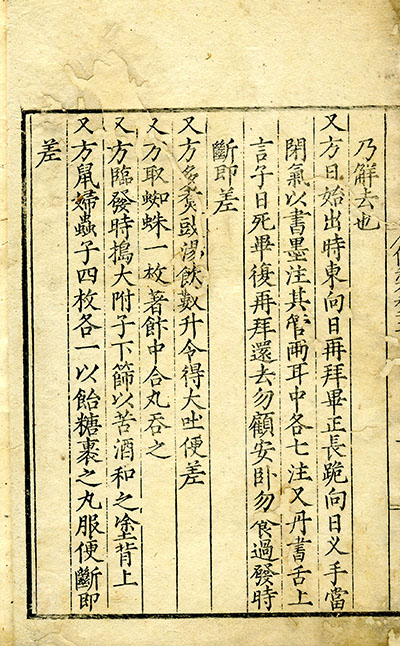 乃解去也
又方日始出時東向日再拜畢正長跪向日叉手當
閉氣以書墨注其管兩耳中各七注又丹書舌上
言子日死畢復再拜還去勿顧安卧勿食過發時
斷即差
又方多煮豉湯飲數升令得大吐便差
又方取蜘蛛一枚著飰中合丸吞之
又方臨發時搗大附子下篩以苦酒和之塗背上
又方鼠婦蟲子四枚各一以飴糖裹之丸服便斷即
差